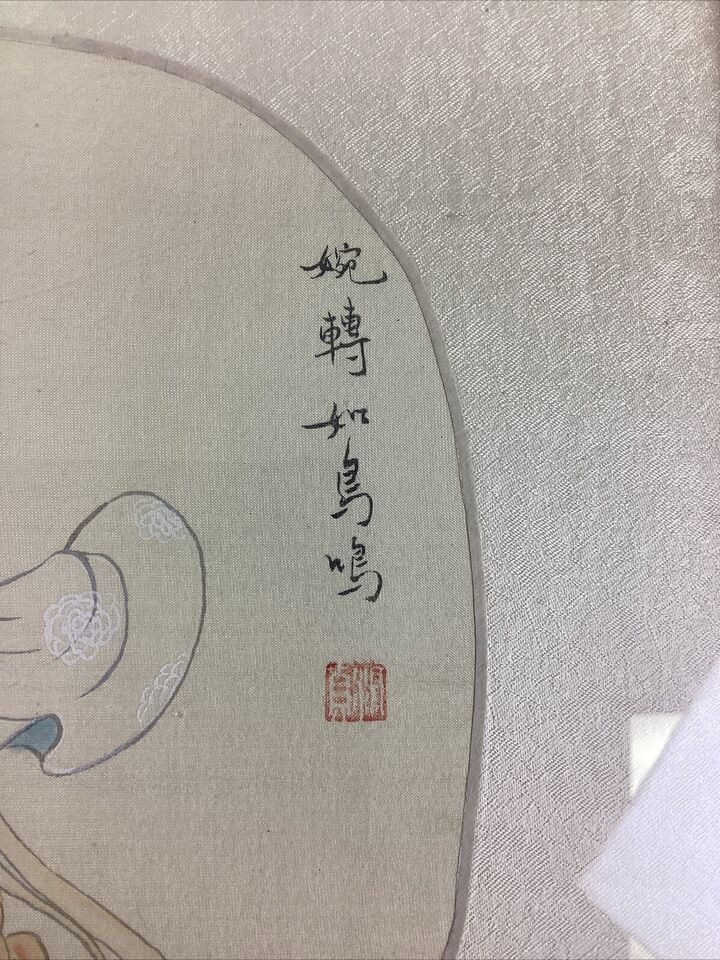 婉轉如鳥鳴